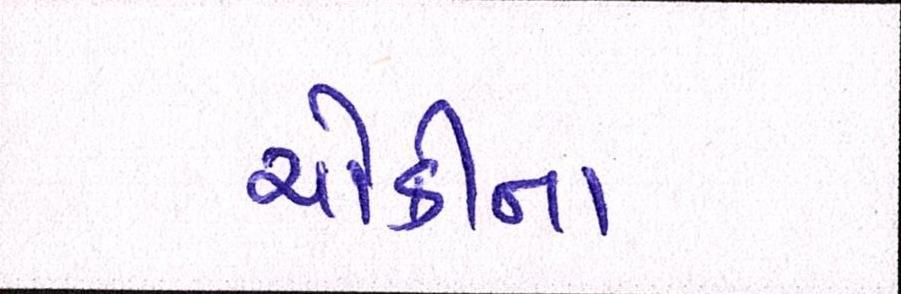 ચોકીના